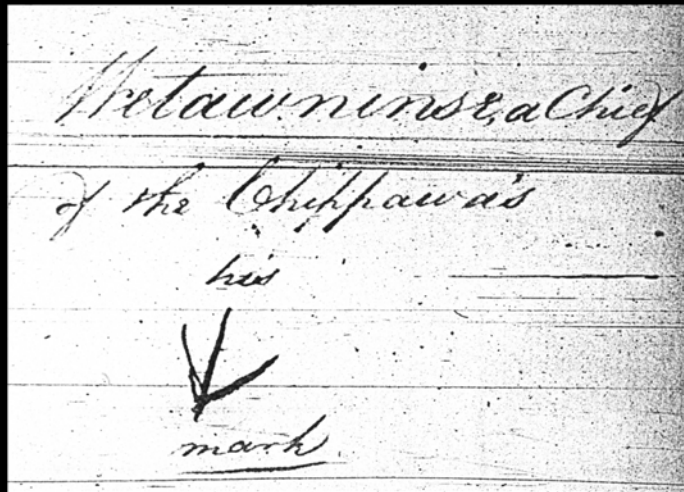 Wetawninse, a Chief
of the Chippawa's
his
mark